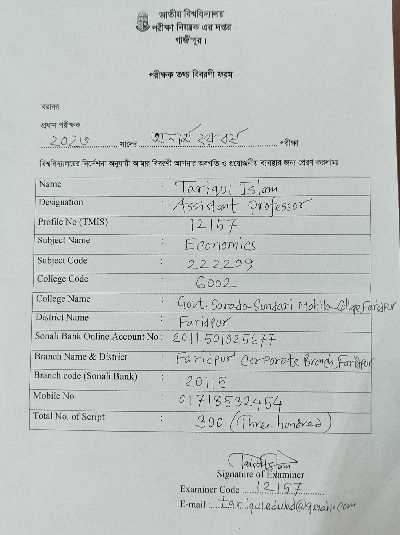 জাতীয় বিশ্ববিদ্যালয়
পরীক্ষা নিয়ন্ত্রক এর দপ্তর
গাজীপুর।
পরীক্ষক তথ্য বিবরণী ফরম
বরাবর
প্রধান পরীক্ষক
2020 সালের অনার্স ২য় বর্ষ পরীক্ষা
বিশ্ববিদ্যালয়ের নির্দেশনা অনুযায়ী আমার বিবরণী আপনার অবগতি ও প্রয়োজনীয় ব্যবস্থার জন্য প্রেরণ করলামঃ
Name : Tariqul Islam
Designation : Assistant Professor
Profile No (TMIS) : 12157
Subject Name : Economics
Subject Code : 222209
College Code : 6002
College Name : Govt. Sarada Sundari Mohila College Faridpur
District Name : Faridpur
Sonali Bank Online Account No :
Branch Name & District : Faridpur Corporate Branch, Faridpur
Branch code (Sonali Bank) :
Mobile No :
Total No. of Script : 300 (Three hundred)
Signature of Examiner
Examiner Code 12157
E-mail :